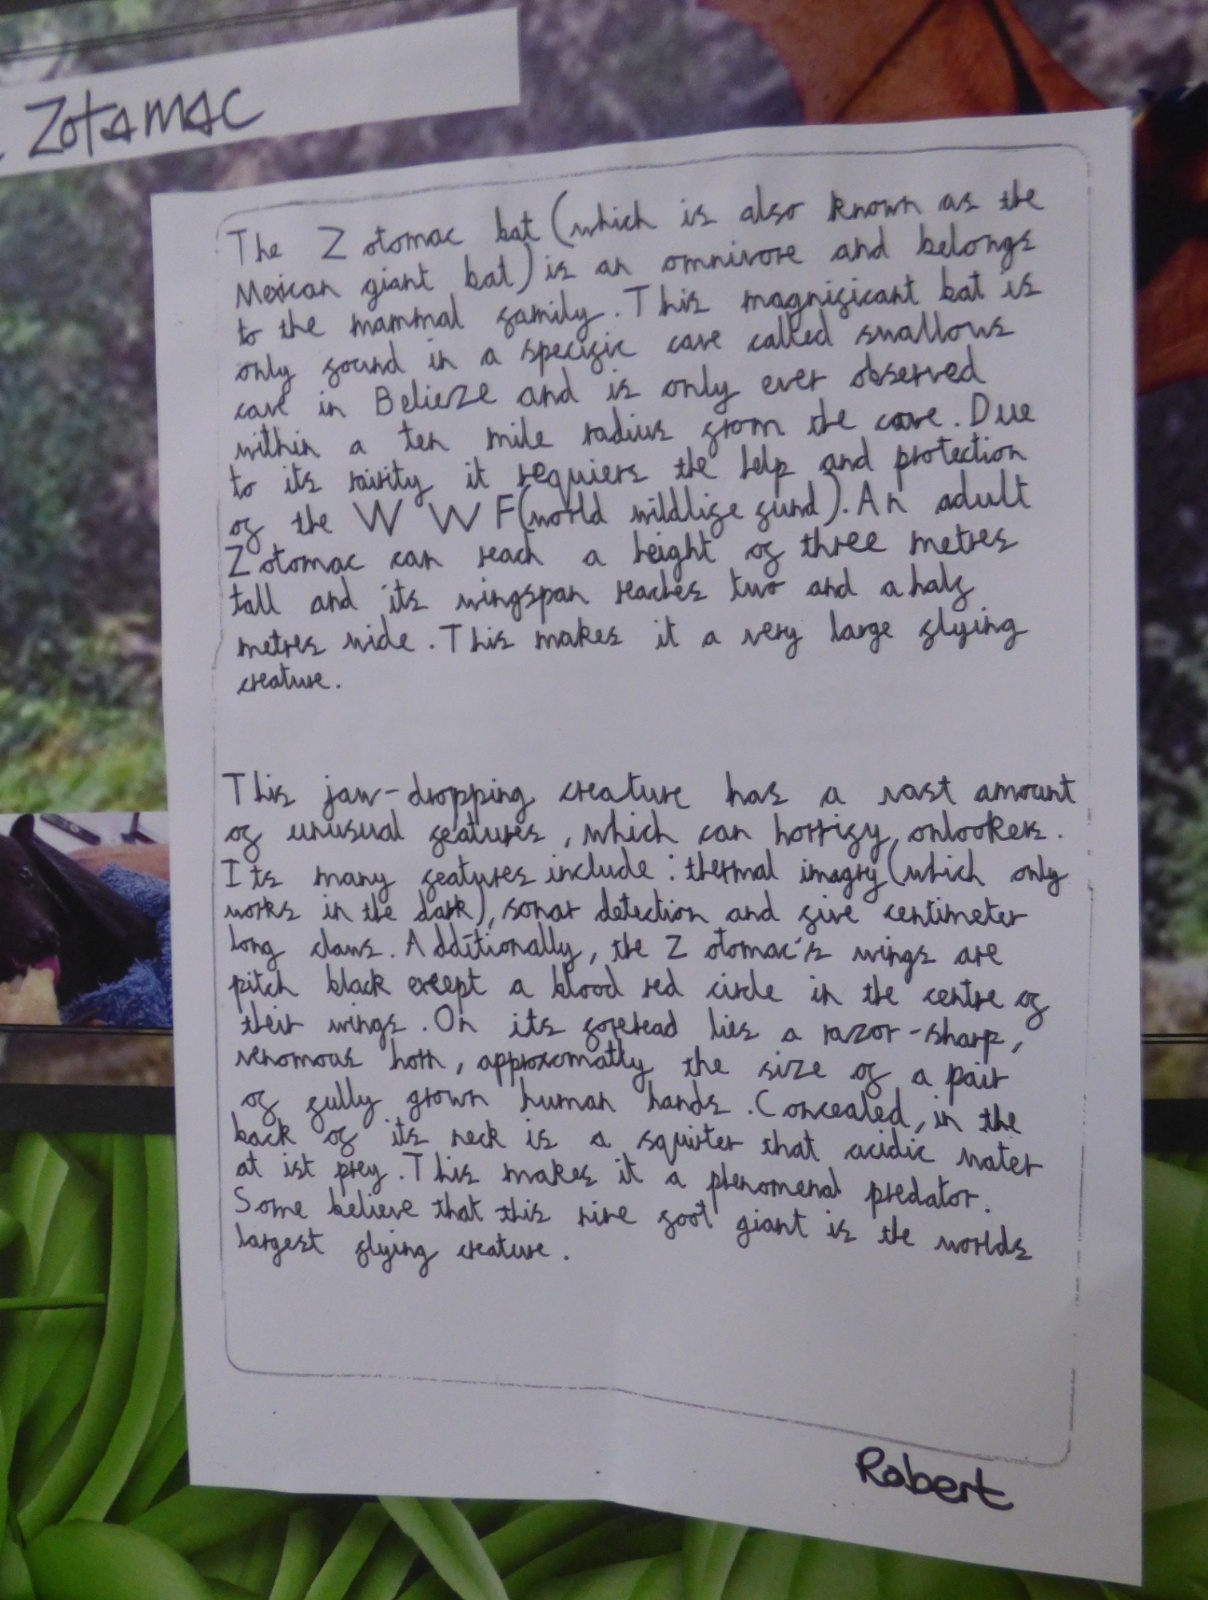 Zotamac
The Zotomac bat (which is also known as the
Mexican giant bat) is an omnivore and belongs
to the mammal family. This magnificant bat is
only found in a specific cave called swallows
cave in Belieze and is only ever observed
within a ten mile radius from the cave. Due
to its rairity it requiers the help and protection
of the WWF (world wildlife fund). An adult
Zotomac can reach a height of three metres
tall and its wingspan reaches two and a half
metres wide. This makes it a very large flying
creature.
This jaw-dropping creature has a vast amount
of unusual features, which can horrify onlookers.
Its many features include: thermal imagry (which only
works in the dark), sonar detection and five centimeter
long claws. Additionally, the Zotomac's wings are
pitch black except a blood red circle in the centre of
their wings. On its forehead lies a razor-sharp,
venomous horn, approxomatly the size of a pair
of fully grown human hands. Concealed, in the
back of its neck is a squirter that acidic water
at ist prey. This makes it a phenomenal predator.
Some believe that this nine foot giant is the worlds
largest flying creature.
Robert